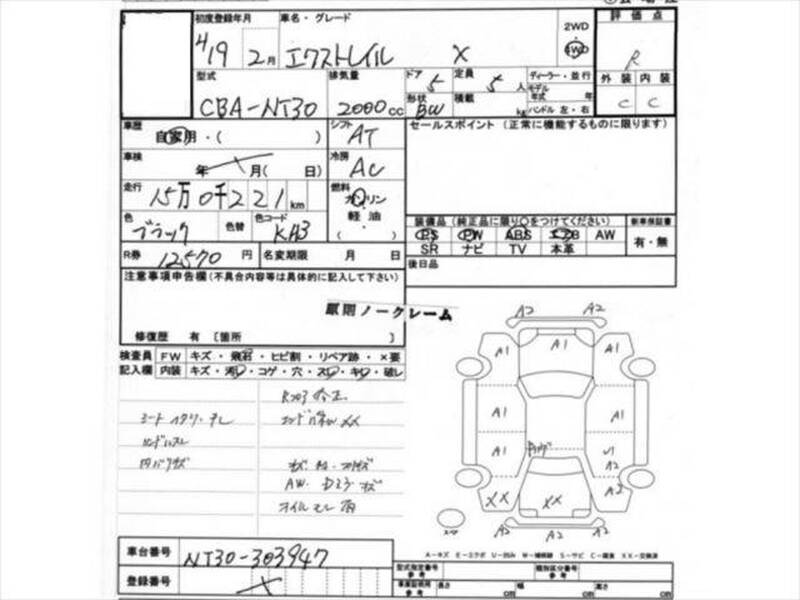 初度登録年月 車名・グレード 2WD 評価点
H19 2月 エクストレイル X 4WD R
型式 排気量 ドア 5 定員 5人 ディーラー・並行 外装 内装
CBA-NT30 2000cc 形状 BW 積載 kg モデル年式 年 ハンドル 左・右 C C
車歴 シフト セールスポイント (正常に機能するものに限ります)
自家用・( ) AT
車検 冷房
年 月( 日) AC
走行 燃料
15万0千221km ガソリン
軽油
( )
色 色替 色コード 装備品 (純正品に限り○をつけてください) 新車保証書
ブラック KH3 PS PW ABS エアB AW 有・無
SR ナビ TV 本革
R券 12570円 名変期限 月 日 後日品
注意事項申告欄 (不具合内容等は具体的に記入して下さい)
原則ノークレーム
修復歴 有 〔箇所 〕
検査員 FW キズ・飛石・ヒビ割・リペア跡・×要
記入欄 内装 キズ・汚レ・コゲ・穴・スレ・キレ・破レ
A2 A2
A1 A1 A1
A1 A1
A1 A2
XX XX A2
A2 A2 A2
A-キズ E-エクボ U-凹み W-補修跡 S-サビ C-腐食 XX-交換済
車台番号 NT30-303947
登録番号
型式指定番号 参考 類別区分番号 参考
長さ cm 幅 cm 高さ cm